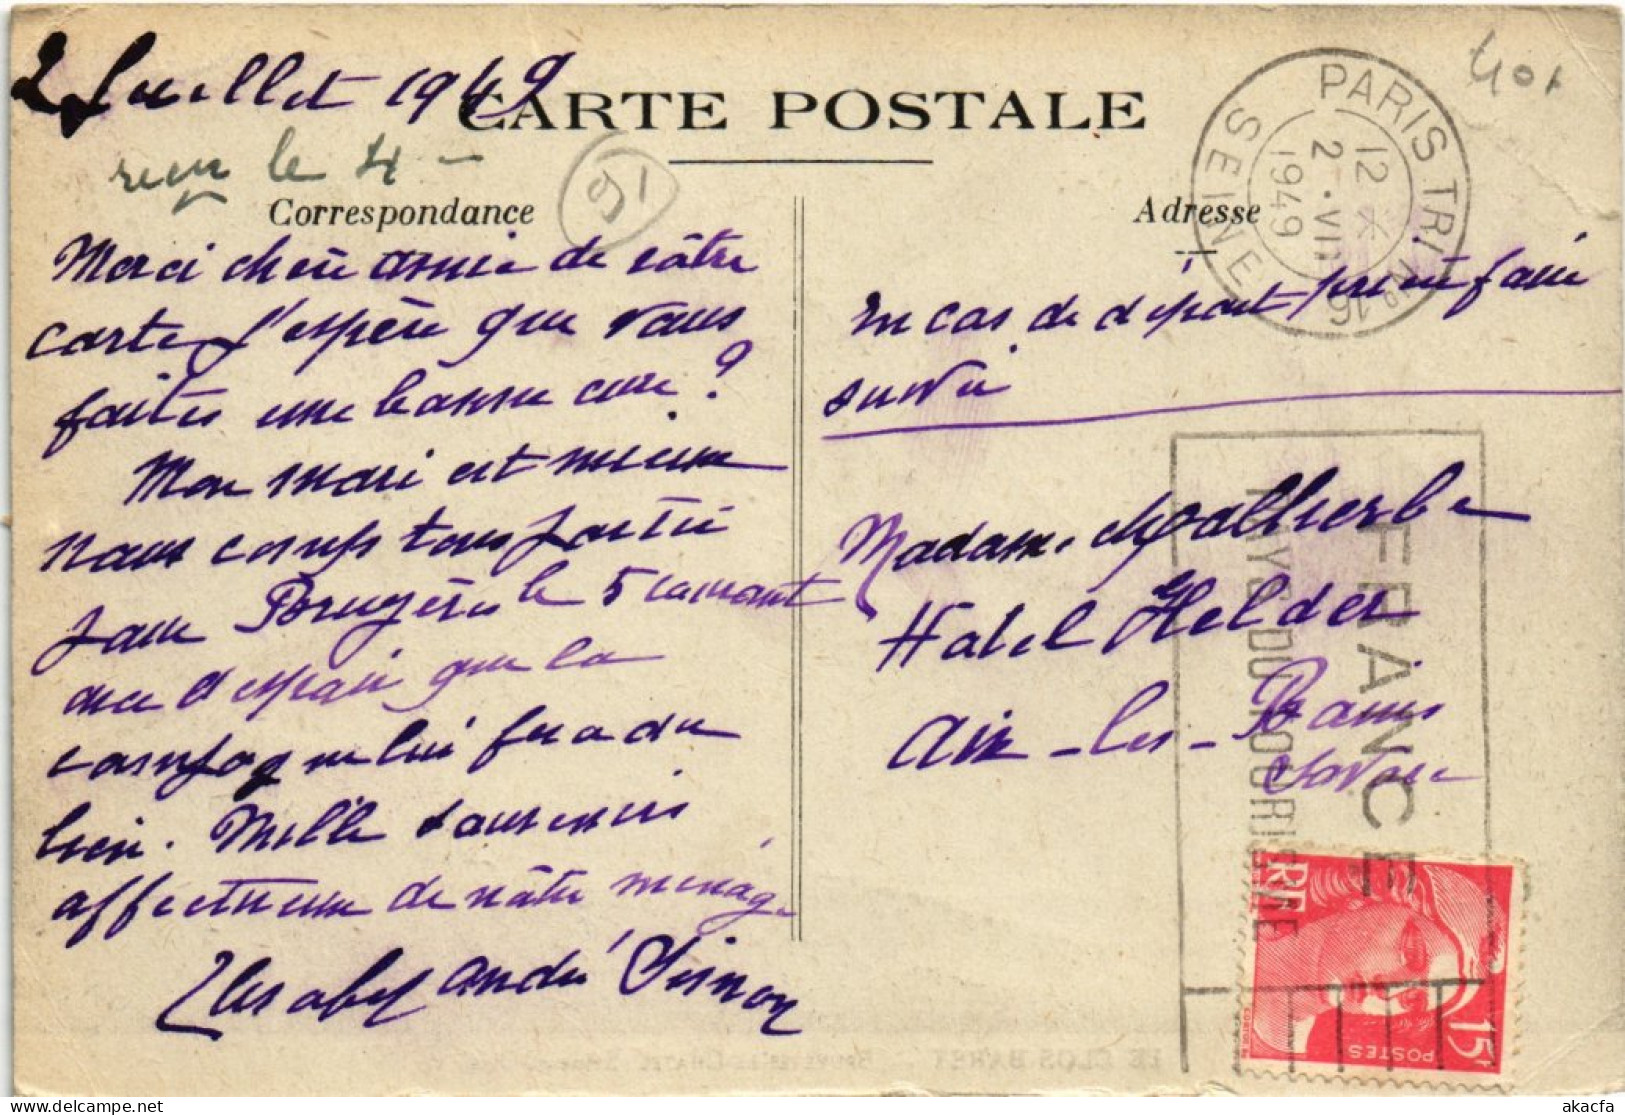 2 Juillet 1949
CARTE POSTALE
reçu le 4 -
91
401
Correspondance
Adresse
PARIS TRI Nº 16
SEINE
12 *
2 · VII
1949
Merci chère amie de vôtre
carte j'espère que vous
faites une bonne cure?
Mon mari est mieux
nous comptons partir
pour Bruyères le 5 courant
avec l'espoir que la
campagne lui fera du
bien. Mille souvenirs
affectueux de nôtre ménage
Elisabeth André Simon
En cas de départ prière faire
suivre
Madame Malherbe
Hotel Helder
Aix-les-Bains
Savoie
FRANCE
PAYS DU TOURISME
15F
POSTES
LE CLOS BARET
akacfa